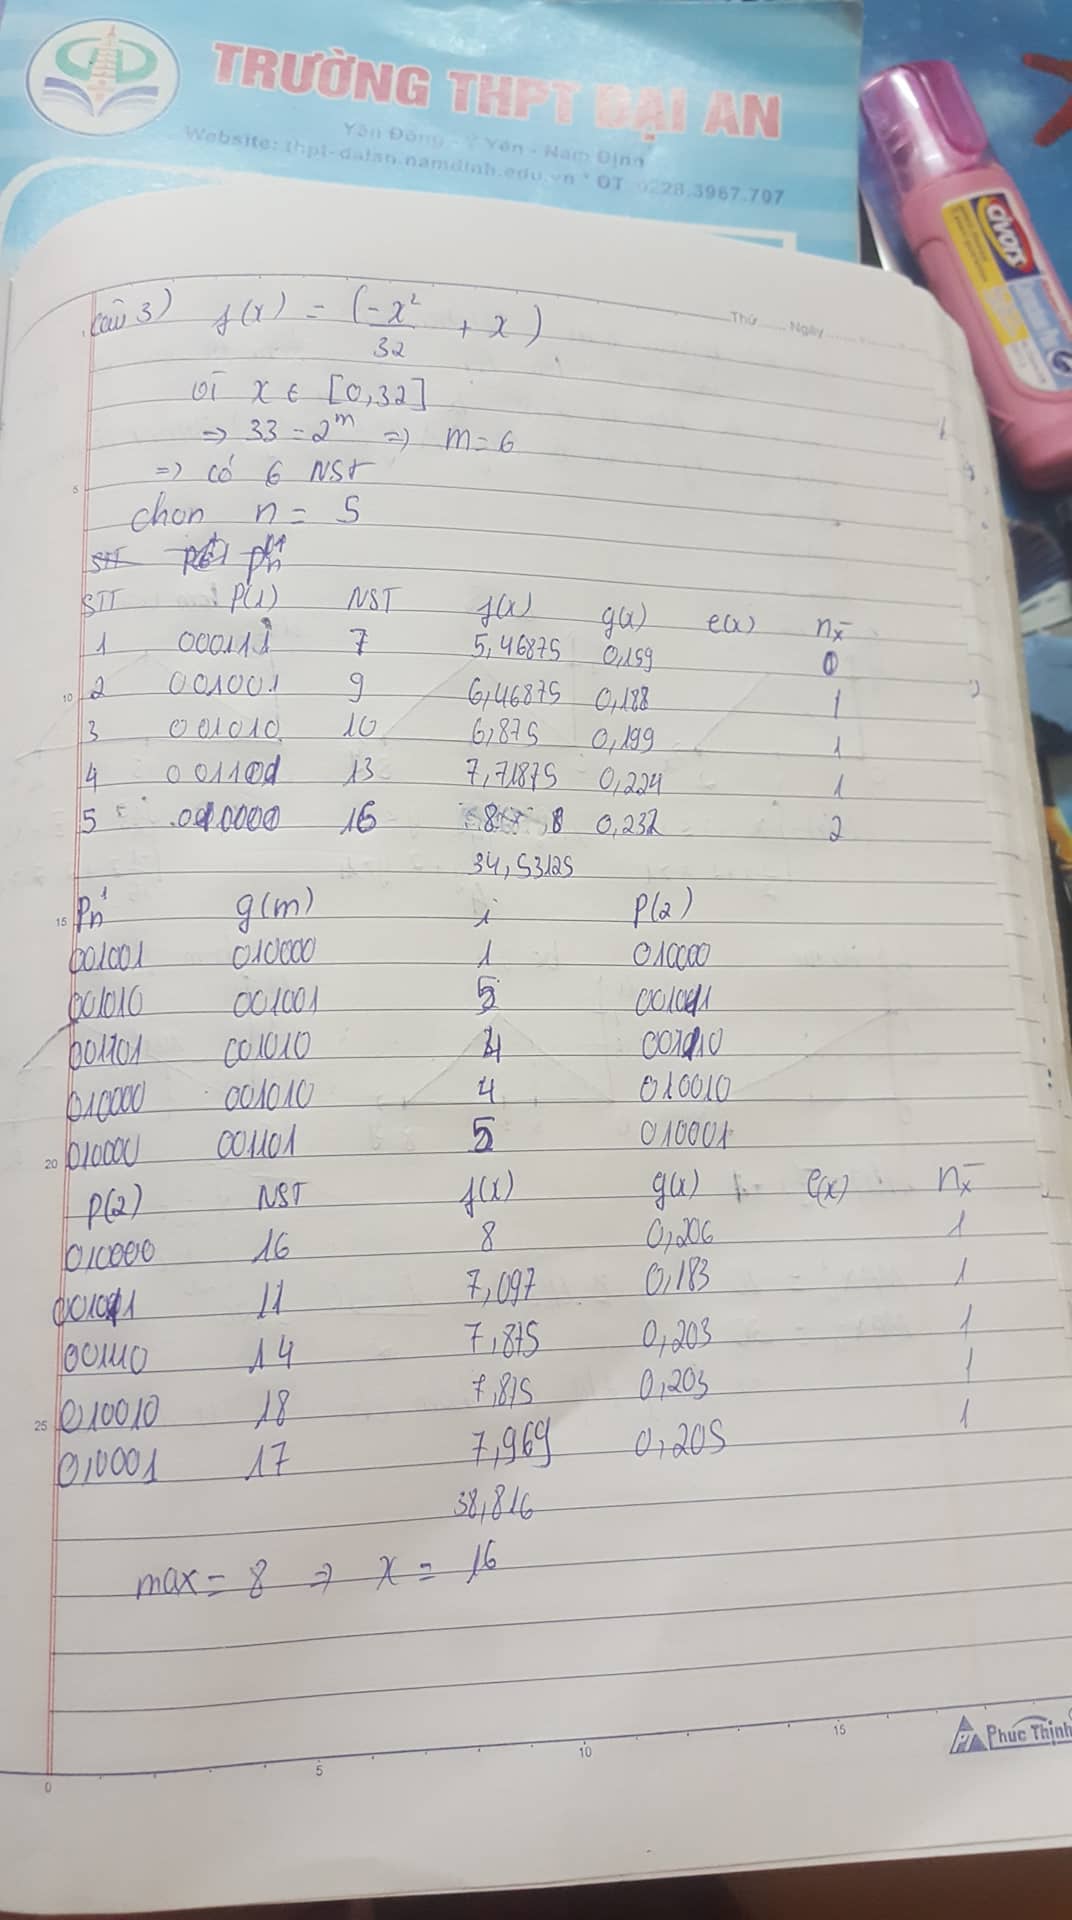 TRƯỜNG THPT ĐẠI AN
Yên Đồng - Ý Yên - Nam Định
Website: thpt-daian.namdinh.edu.vn * ĐT 0228.3967.707
Thứ Ngày
Câu 3) f(x) = (-x²/32 + x)
Vì x ∈ [0,32]
=> 33 = 2^m => m = 6
=> có 6 NST
chọn n = 5
STT P(1) NST f(x) g(x) e(x) n_x
1 000111 7 5,46875 0,159 0
2 001001 9 6,46875 0,188 1
3 001010 10 6,875 0,199 1
4 001101 13 7,71875 0,224 1
5 010000 16 8 0,232 2
34,53125
Pn¹ g(m) i P(2)
001001 010000 1 010000
001010 001001 5 001011
001101 001010 4 001110
010000 001010 4 010010
010000 001101 5 010001
P(2) NST f(x) g(x) e(x) n_x
010000 16 8 0,206 1
001011 11 7,097 0,183 1
001110 14 7,875 0,203 1
010010 18 7,875 0,203 1
010001 17 7,969 0,205 1
38,816
max = 8 => x = 16
Phúc Thịnh